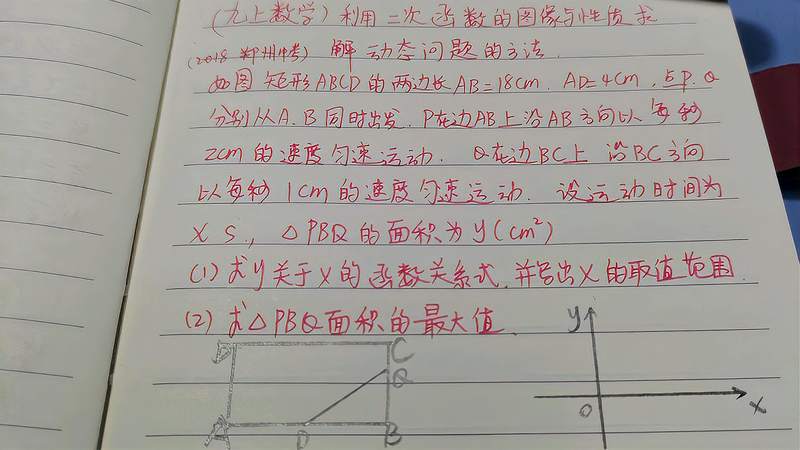 (九上数学) 利用二次函数的图像与性质求
(2018 郑州中考) 解动态问题的方法.
如图 矩形ABCD的两边长AB=18cm. AD=4cm, 点P.Q
分别从A.B同时出发. P在边AB上沿AB方向以每秒
2cm的速度匀速运动. Q在边BC上 沿BC方向
以每秒1cm的速度匀速运动. 设运动时间为
x s., △PBQ的面积为y(cm²)
(1) 求y关于x的函数关系式, 并写出x的取值范围.
(2) 求△PBQ面积的最大值.
D C y
Q
O x
A P B